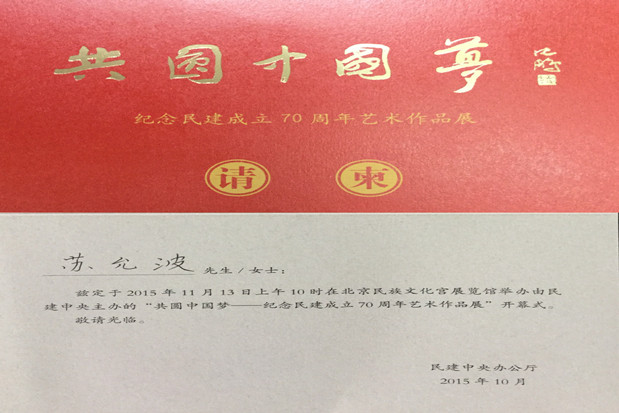 共圆中國夢
纪念民建成立70周年艺术作品展
请柬
苏允波 先生/女士：
兹定于2015年11月13日上午10时在北京民族文化宫展览馆举办由民
建中央主办的“共圆中国梦——纪念民建成立70周年艺术作品展”开幕式。
敬请光临。
民建中央办公厅
2015年10月